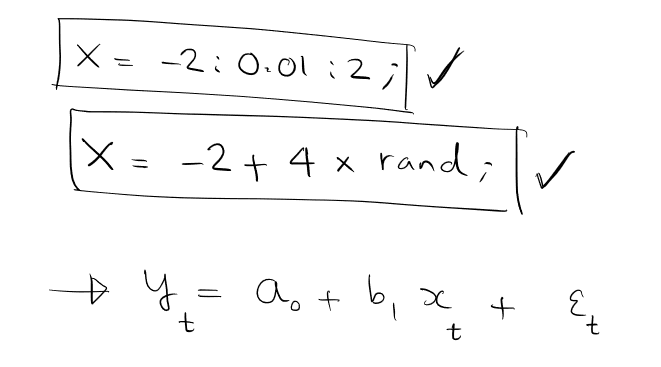 X = -2 : 0.01 : 2 ; ✓
X = -2 + 4 × rand ; ✓
→ y_t = a_0 + b_1 x_t + ε_t